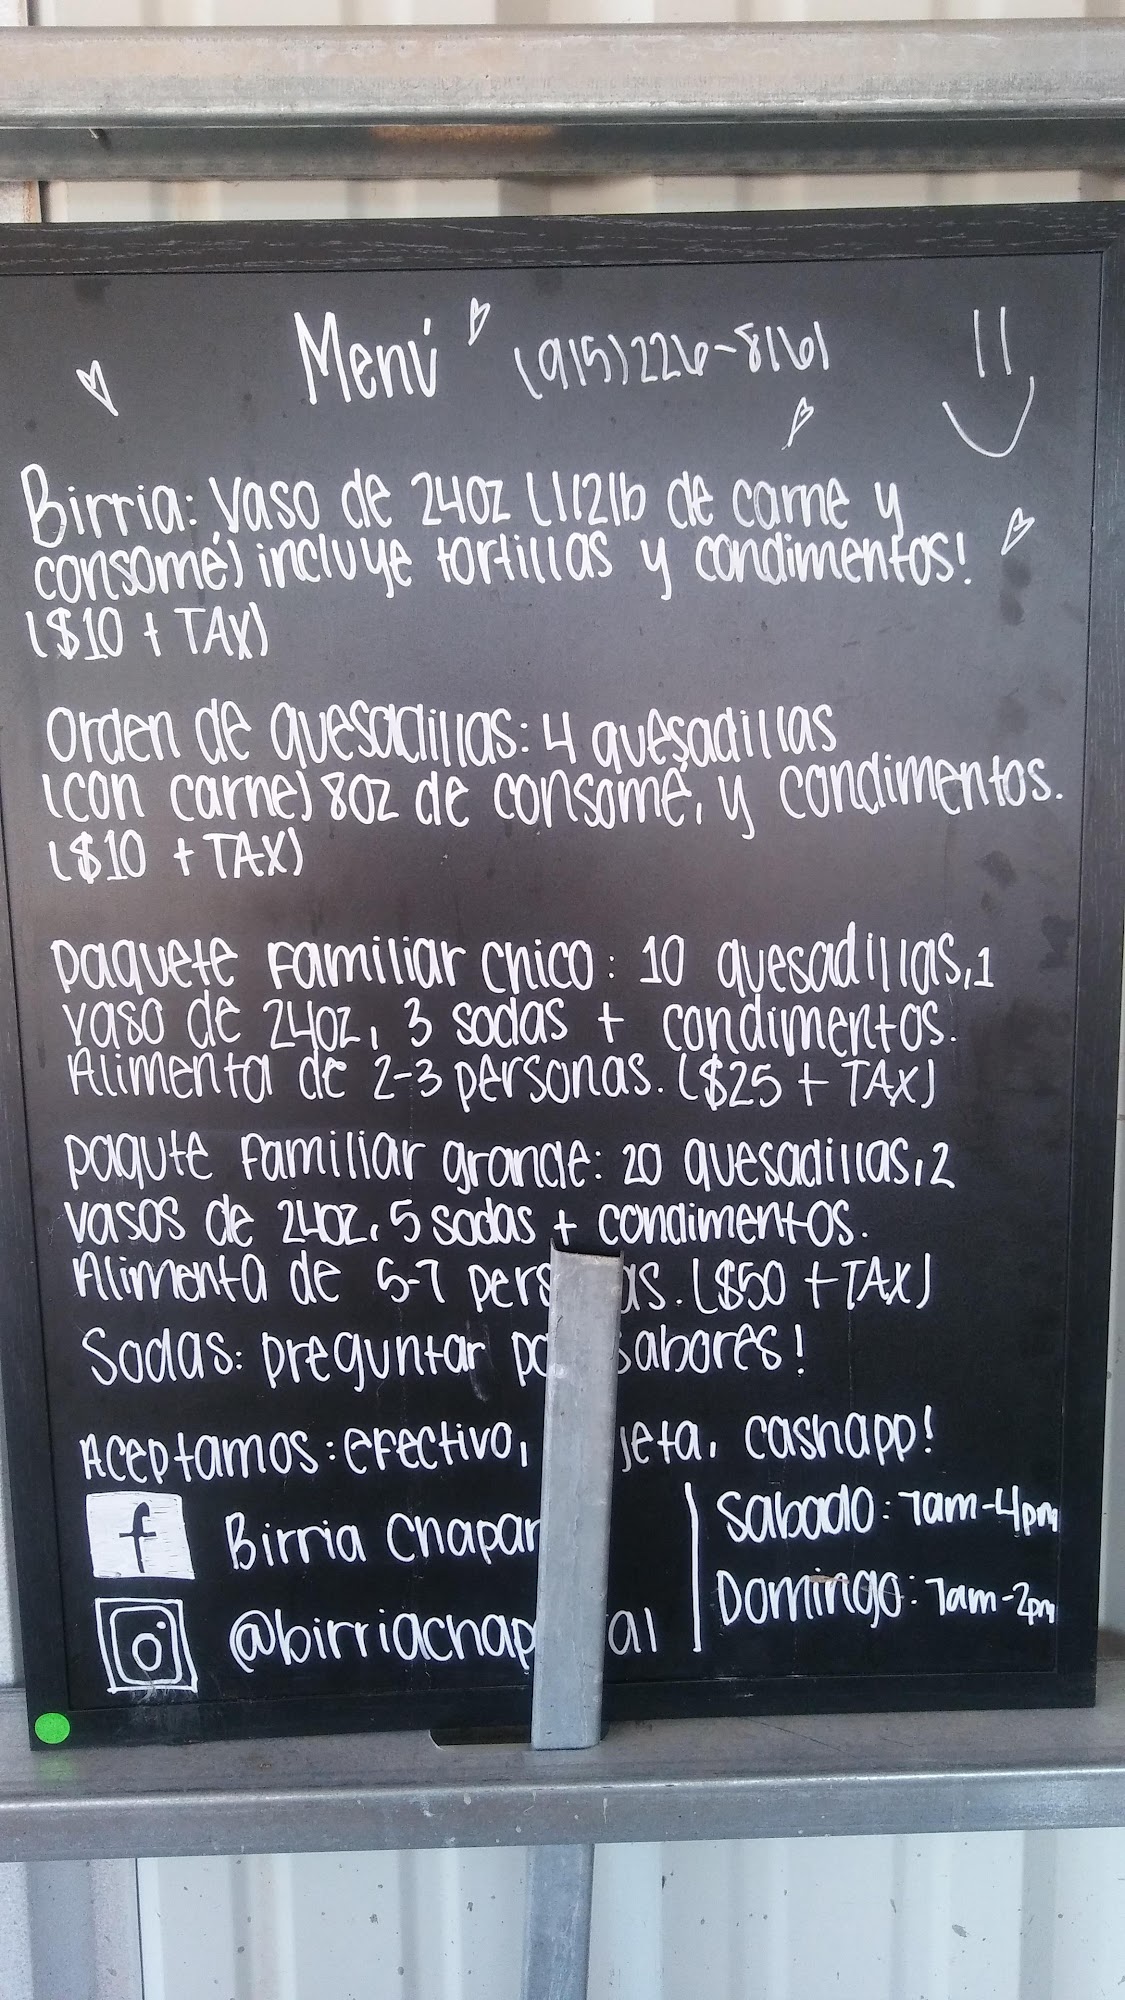 Menú (915) 226-8161
Birria: Vaso de 24oz (1/2lb de carne y
consomé) incluye tortillas y condimentos!
($10 + TAX)
Orden de quesadillas: 4 quesadillas
(con carne) 8oz de consomé, y condimentos.
($10 + TAX)
Paquete Familiar Chico: 10 quesadillas, 1
vaso de 24oz, 3 sodas + condimentos.
Alimenta de 2-3 personas. ($25 + TAX)
Paqute Familiar grande: 20 quesadillas, 2
vasos de 24oz, 5 sodas + condimentos.
Alimenta de 5-7 pers as. ($50 + TAX)
Sodas: preguntar sabores!
Aceptamos: efectivo, jeta, cashapp!
Birria Chapar
@birriachap al
Sabado: 7am-4pm
Domingo: 7am-2pm